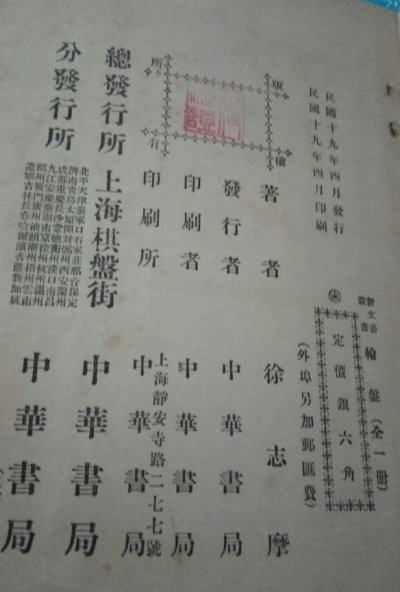 民國十九年四月發行
民國十九年四月印刷
新文藝叢書
輪盤(全一册)
定價銀六角
(外埠另加郵匯費)
版權所有
著者 徐志摩
發行者 中華書局
印刷者 中華書局
印刷所 上海靜安寺路二七七號 中華書局
總發行所 上海棋盤街 中華書局
分發行所 中華書局
北平天津張家口石家莊邢台保定
濟南青島太原開封鄭州西安蘭州
成都重慶長沙常德衡州漢口南昌
九江安慶蕪湖南京徐州杭州溫州
福州厦門廣州汕頭潮州梧州雲南
遼寧吉林長春哈爾濱香港新加坡